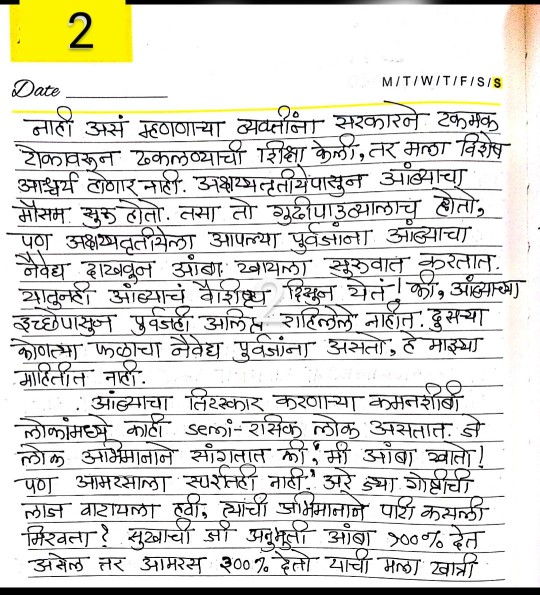 2
Date
M/T/W/T/F/S/S
नाही असं म्हणणाऱ्या व्यक्तींना सरकारने टकमक
टोकावरून ढकलण्याची शिक्षा केली, तर मला विशेष
आश्चर्य होणार नाही. अक्षय्यतृतीयेपासुन आंब्याचा
मौसम सुरू होतो. तसा तो गुढीपाडव्यालाच होतो,
पण अक्षय्यतृतीयेला आपल्या पुर्वजांना आंब्याचा
नैवेद्य दाखवून आंबा खायला सुरूवात करतात.
यातुनही आंब्याचं वैशिष्ट्य दिसुन येतं! की, आंब्याच्या
इच्छेपासुन पुर्वजही अलिप्त राहिलेले नाहीत. दुसऱ्या
कोणत्या फळाचा नैवेद्य पुर्वजांना असतो, हे माझ्या
माहितीत नाही.
आंब्याचा तिरस्कार करणाऱ्या कमनशीबी
लोकांमध्ये काही semi-रसिक लोक असतात. जे
लोक अभिमानाने सांगतात की, 'मी आंबा खातो!
पण आमरसाला स्पर्शही नाही.' अरे ज्या गोष्टीची
लाज वाटायला हवी, त्याची अभिमानाने पाटी कसली
मिरवता? सुखाची जी अनुभुती आंबा १००% देत
असेल तर आमरस २००% देतो याची मला खात्री